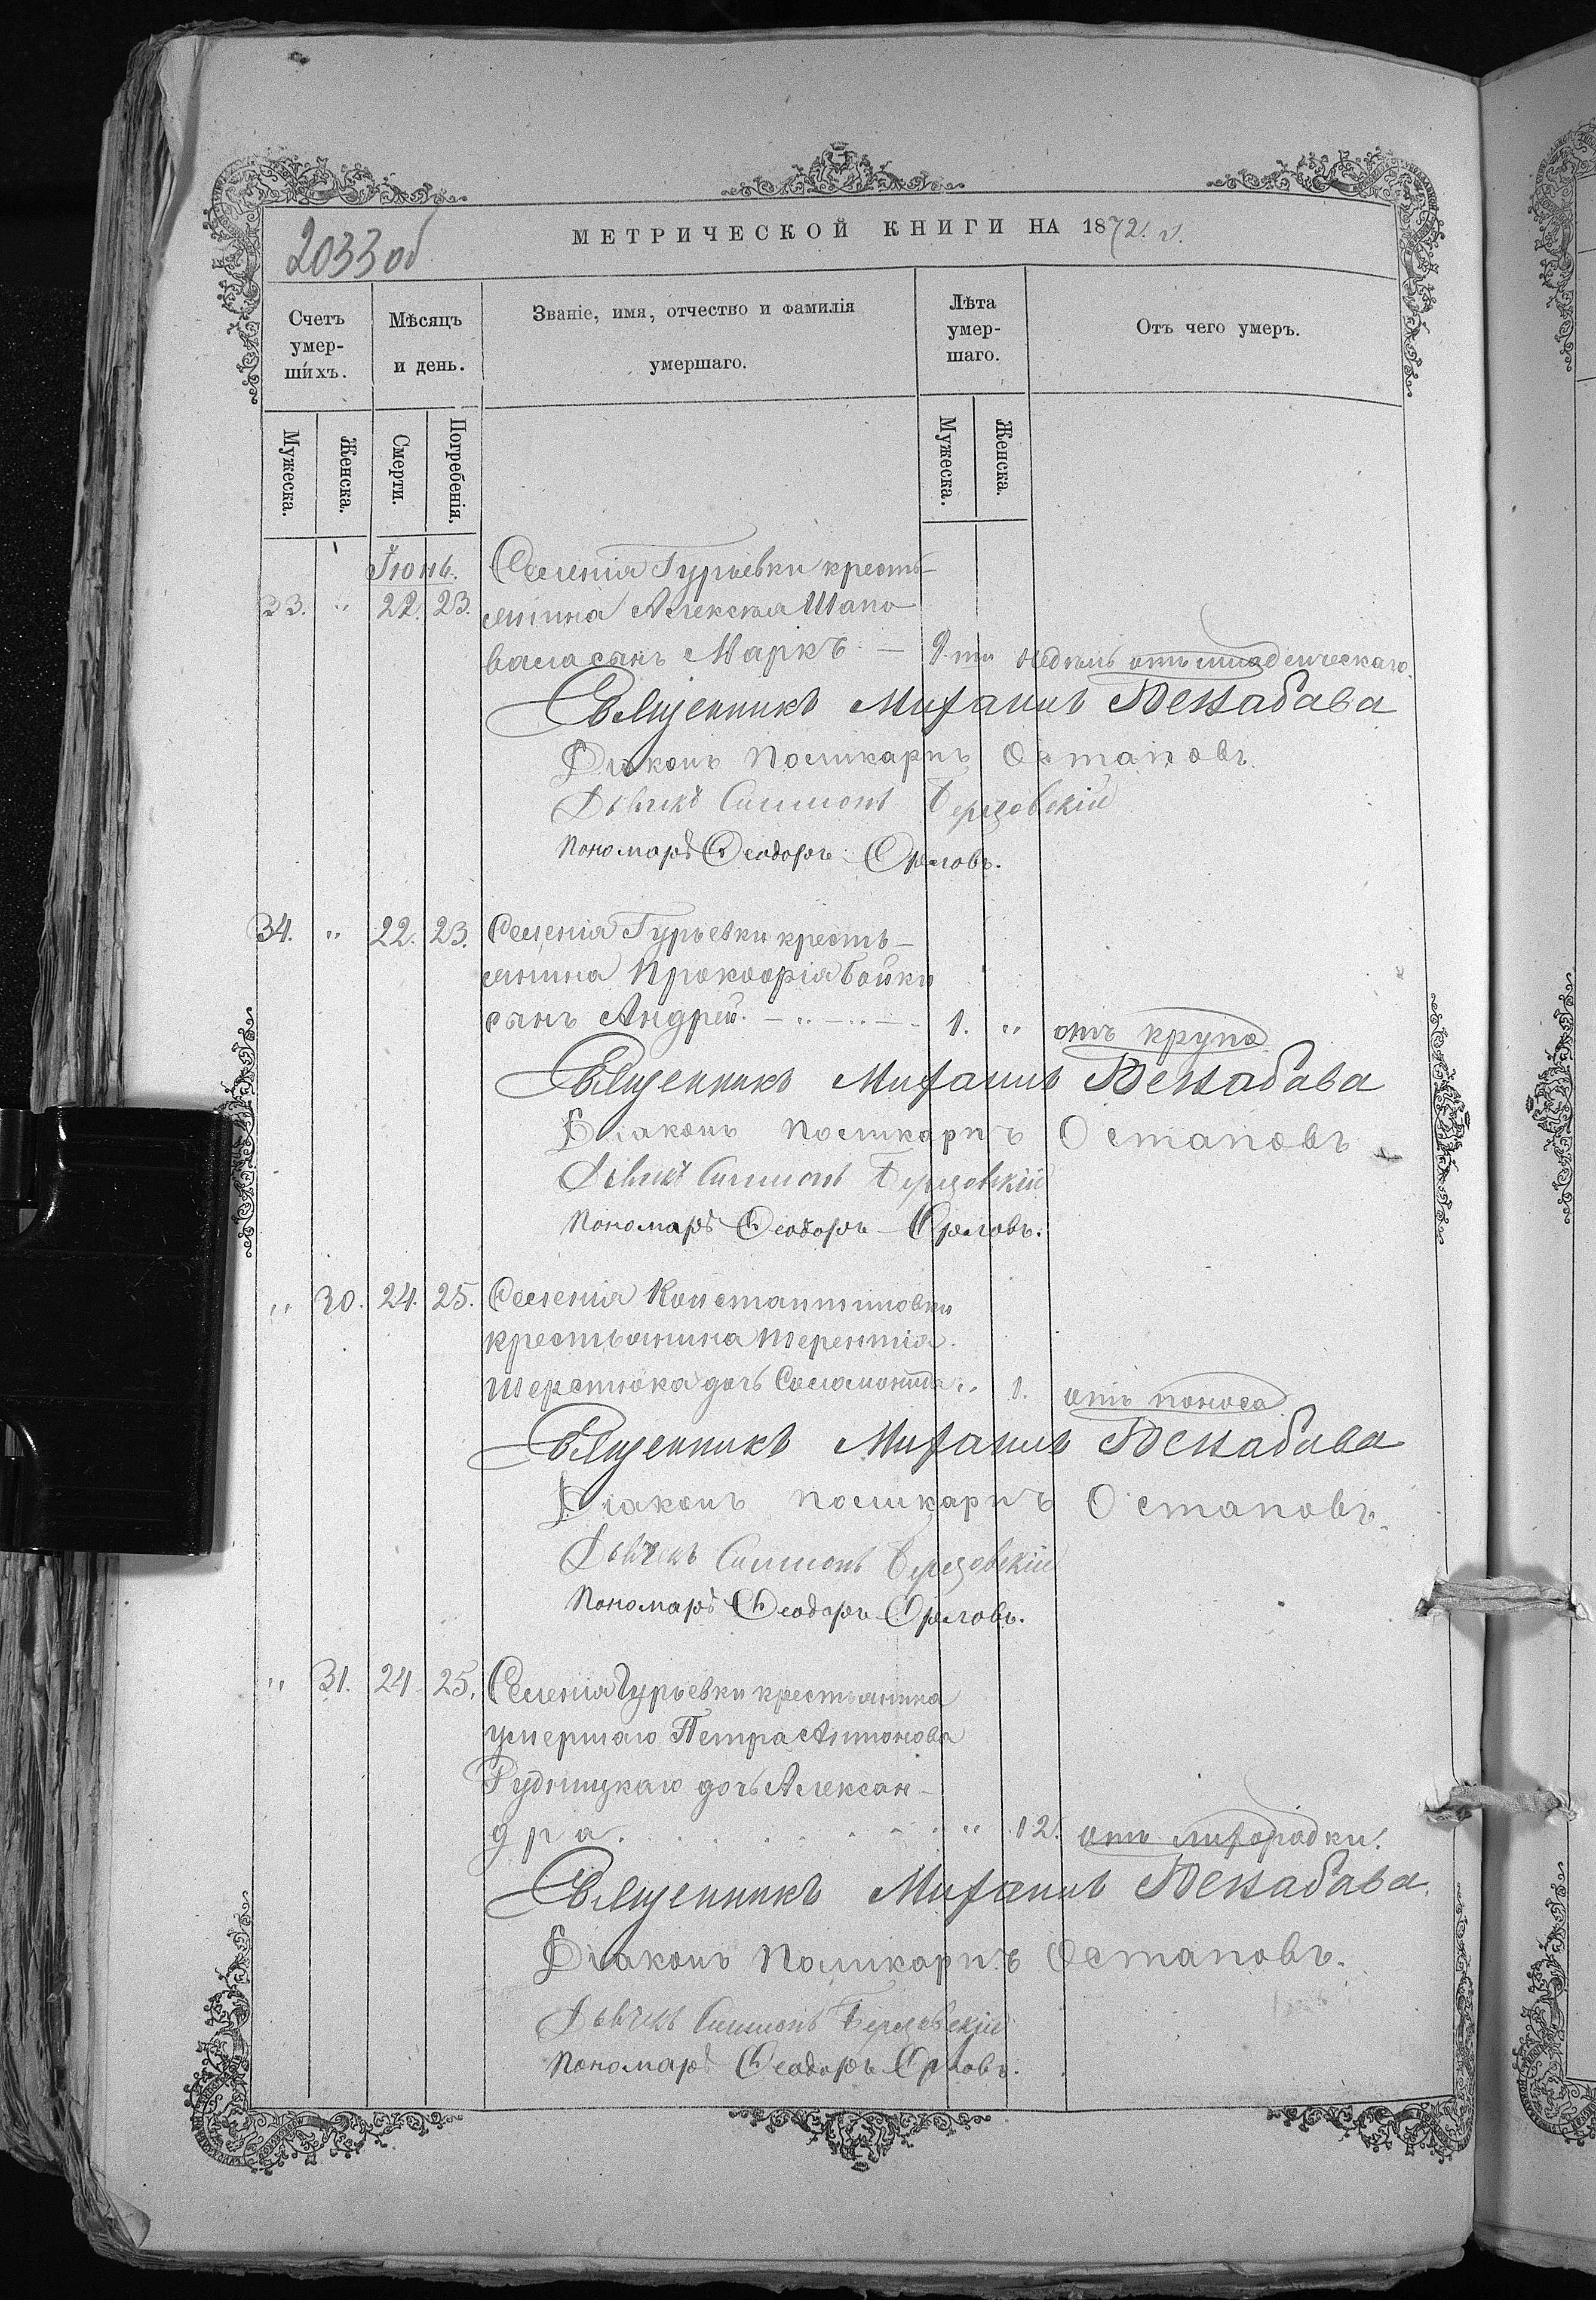 2033 об
МЕТРИЧЕСКОЙ КНИГИ НА 1872. г.
Счетъ умер-шихъ.
Мѣсяцъ и день.
Званіе, имя, отчество и фамилія умершаго.
Лѣта умер-шаго.
Отъ чего умеръ.
Мужеска.
Женска.
Смерти.
Погребенія.
Мужеска.
Женска.
Іюнь. Селенія Гурьевки кресть-
33. " 22. 23. янина Алексѣя Шапо
вала сынъ Маркъ — 9-ти недѣль отъ младенческаго.
Священникъ Михаилъ
Діаконъ Поликарпъ Остаповъ
Дьячкъ Симеонъ Березовскій
Пономарь Ѳеодоръ Орловъ.
34. " 22. 23. Селенія Гурьевки кресть-
янина Прокофія Бойки
сынъ Андрей. 1. " отъ крупа
Священникъ Михаилъ
Діаконъ Поликарпъ Остаповъ
Дьячкъ Симеонъ Березовскій
Пономарь Ѳеодоръ Орловъ.
" 30. 24. 25. Селенія Константиновки
крестьянина Терентія
Шерстюка дочь Соломонида " 1. отъ поноса
Священникъ Михаилъ
Діаконъ Поликарпъ Остаповъ.
Дьячекъ Симеонъ Березовскій
Пономарь Ѳеодоръ Орловъ.
" 31. 24 25. Селенія Гурьевки крестьянина
умершаго Петра Антонова
Рудницкаго дочь Алексан-
дра. " 12. отъ лихорадки.
Священникъ Михаилъ
Діаконъ Поликарпъ Остаповъ.
Дьячкъ Симеонъ Березовскій
Пономарь Ѳеодоръ Орловъ.